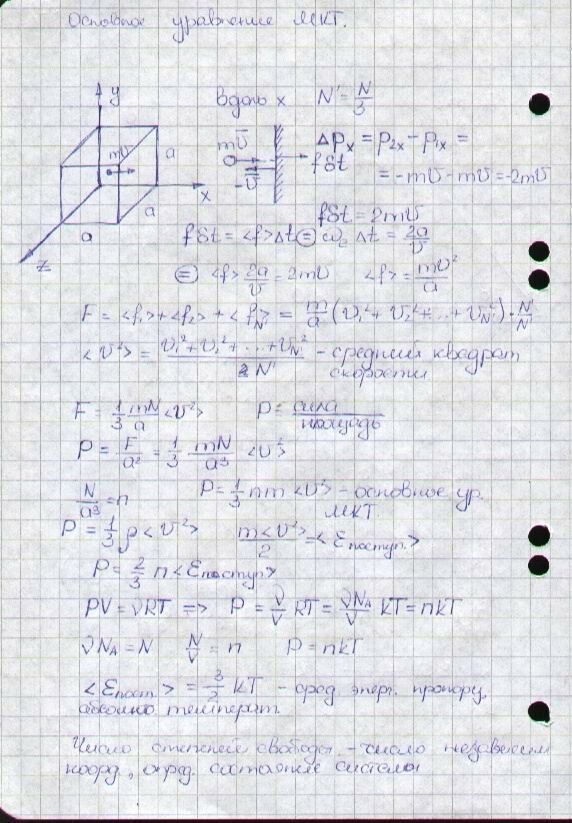 Основное уравнение МКТ.
вдоль x N' = N/3
y
mv̄ a
x
a
a
z
mv̄
-v̄
fδt
Δpₓ = p₂ₓ - p₁ₓ =
= -mv - mv = -2mv
fδt = 2mv
fδt = <f>Δt = Δt = 2a/v
= <f> 2a/v = 2mv <f> = mv²/a
F = <f₁> + <f₂> + <f_N'> = m/a (v₁² + v₂² + ... + v_N'²) · N'/N'
<v²> = (v₁² + v₂² + ... + v_N²)/N' - средний квадрат
скорости
F = 1/3 mN/a <v²> P = сила/площадь
P = F/a² = 1/3 mN/a³ <v²>
N/a³ = n P = 1/3 nm <v²> - основное ур.
МКТ.
P = 1/3 ρ <v²> m<v²>/2 = <Eпоступ.>
P = 2/3 n <Eпоступ>
PV = νRT => P = ν/V RT = νN_A/V kT = nkT
νN_A = N N/V = n P = nkT
<Eпост.> = 3/2 kT - сред. энерг. пропорц.
абсолют температ.
Число степеней свободы - число независим
коорд, опред. состояние системы